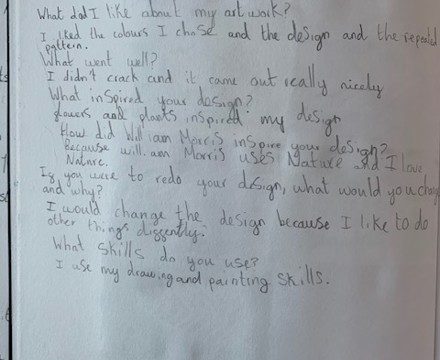 What did I like about my art work?
I liked the colours I chose and the design and the repeated
pattern.
What went well?
I didn't crack and it came out really nicely
What inspired your design?
flowers and plants inspired my design
How did William Morris inspire your design?
Because william Morris uses Nature and I love
Nature.
If you were to redo your design, what would you change
and why?
I would change the design because I like to do
other things differently.
What skills do you use?
I use my drawing and painting skills.